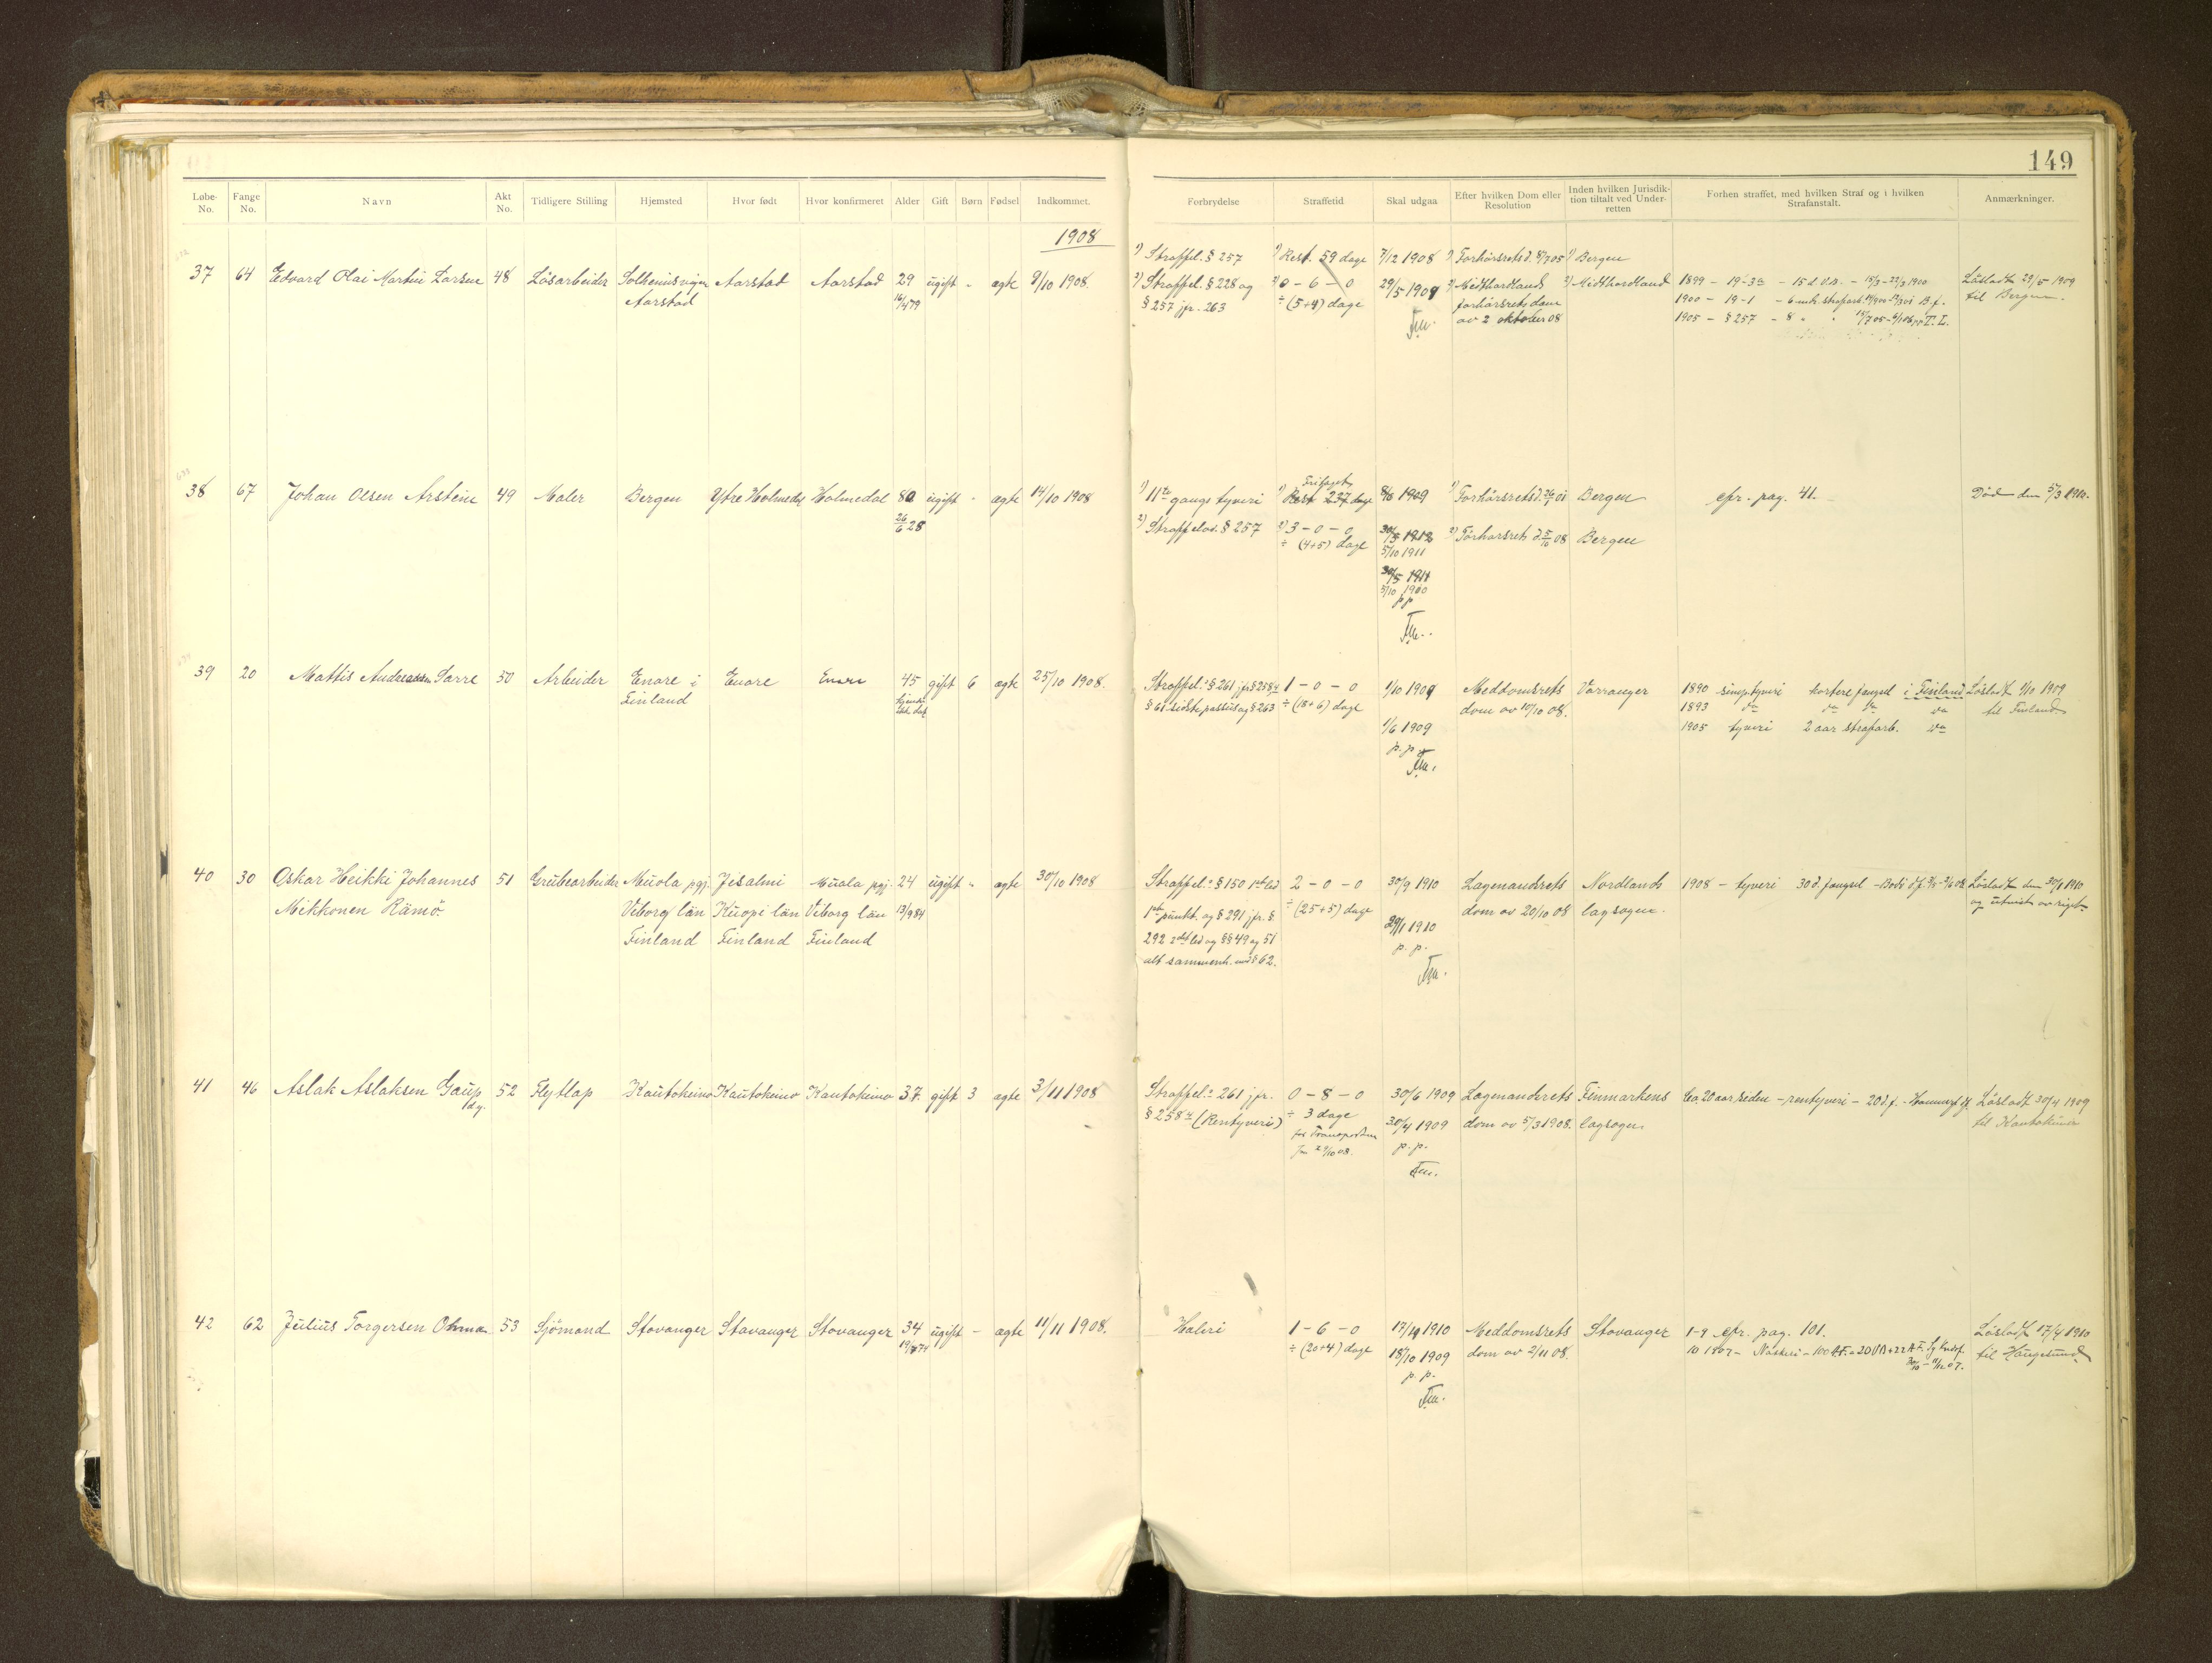 149
Løbe-No. Fange No. Navn Akt No. Tidligere Stilling Hjemsted Hvor født Hvor konfirmeret Alder Gift Børn Fødsel Indkommet. Forbrydelse Straffetid Skal udgaa Efter hvilken Dom eller Resolution Inden hvilken Jurisdiktion tiltalt ved Underretten Forhen straffet, med hvilken Straf og i hvilken Strafanstalt. Anmærkninger.
1908
1) Straffel. § 257 1) Rest. 59 dage 7/12 1908 1) Forhørsrets d. 8/7 05 1) Bergen
37 64 Edvard Olai Martin Larsen 48 Løsarbeider Aarstad Aarstad 29 ugift - ægte 9/10 1908. 2) Straffel. § 228 og 2) 0 - 6 - 0 29/5 1909 2) Midthordlands 2) Midthordland 1899 - 19-3 - 15 d. V.B. Løsladt 29/5 1909
Aarstad 16/4 79 § 257 jfr. 263 ÷ (5+4) dage Fm. forhørsrets dom 1900 - 19-1 - 6 mdr. strafarb. B.f. til Bergen.
av 2 oktober 08 1905 - § 257 - 8 " " T. L.
38 67 Johan Olsen Arstein 49 Maler Bergen Ytre Holmedal Holmedal 80 ugift - ægte 14/10 1908 1) 11te gangs tyveri 1) Rest 237 dage 8/6 1909 1) Forhørsrets d. Bergen cfr. pag. 41. Død den 5/3 1910.
26/6 28 2) Straffelov. § 257 2) 3 - 0 - 0 30/5 1912 2) Forhørsrets d. 5/10 08 Bergen
÷ (4+5) dage 5/10 1911
30/5 1911
5/10 1910
p.p
Fm.
39 20 Mattis Andreassen Sarre 50 Arbeider Enare i Enare Enare 45 gift 6 ægte 25/10 1908. Straffel.s § 261 jfr. § 258 1 - 0 - 0 1/10 1909 Meddomsrets Varranger 1890 simp. tyveri kortere fængsel i Finland Løsladt 1/10 1909
Finland § 61 sidste passus og § 263 ÷ (18+6) dage dom av 10/10 08. 1893 do do do do til Finland
1/6 1909 1905 tyveri 2 aar strafarb. do
p.p.
Fm.
40 30 Oskar Heikki Johannes 51 Grubearbeider Muola pgj. Jisalmi Muola pgj. 24 ugift " ægte 30/10 1908 Straffel.s § 150 1ste led 2 - 0 - 0 30/9 1910 Lagmandsrets Nordlands 1908 - tyveri 30 d. fængsel - Bodø d.f. Løsladt den 30/1 1910
Mikkonen Rämö. Viborg län Kuopi län Viborg län 13/9 84 1ste punkt. og § 291 jfr. § ÷ (25+5) dage dom av 20/10 08 lagsogn. og utvist av riget
Finland Finland Finland 292 2det led og §§ 49 og 51 29/1 1910
alt sammenh. med § 62. p.p.
Fm.
41 46 Aslak Aslaksen Gaup 52 Flytlap Kautokeino Kautokeino Kautokeino 37 gift 3 ægte 3/11 1908 Straffel.s 261 jfr. 0 - 8 - 0 30/6 1909 Lagmandsrets Finmarkens Ca. 20 aar siden - rentyveri - 20 d. f. - Løsladt 30/4 1909
§ 258 (Rentyveri) ÷ 3 dage 30/4 1909 dom av 5/3 1908. lagsogn til Kautokeino
for Transporten p.p.
Fm.
42 62 Julius Torgersen 53 Sjømand Stavanger Stavanger Stavanger 34 ugift - ægte 11/11 1908. Haleri 1 - 6 - 0 17/4 1910 Meddomsrets Stavanger 1-9 cfr. pag. 101. Løsladt 17/4 1910
÷ (20+4) dage 18/10 1909 dom av 2/11 08. 10 1907 - Naskeri - til Haugesund
p.p.
Fm.